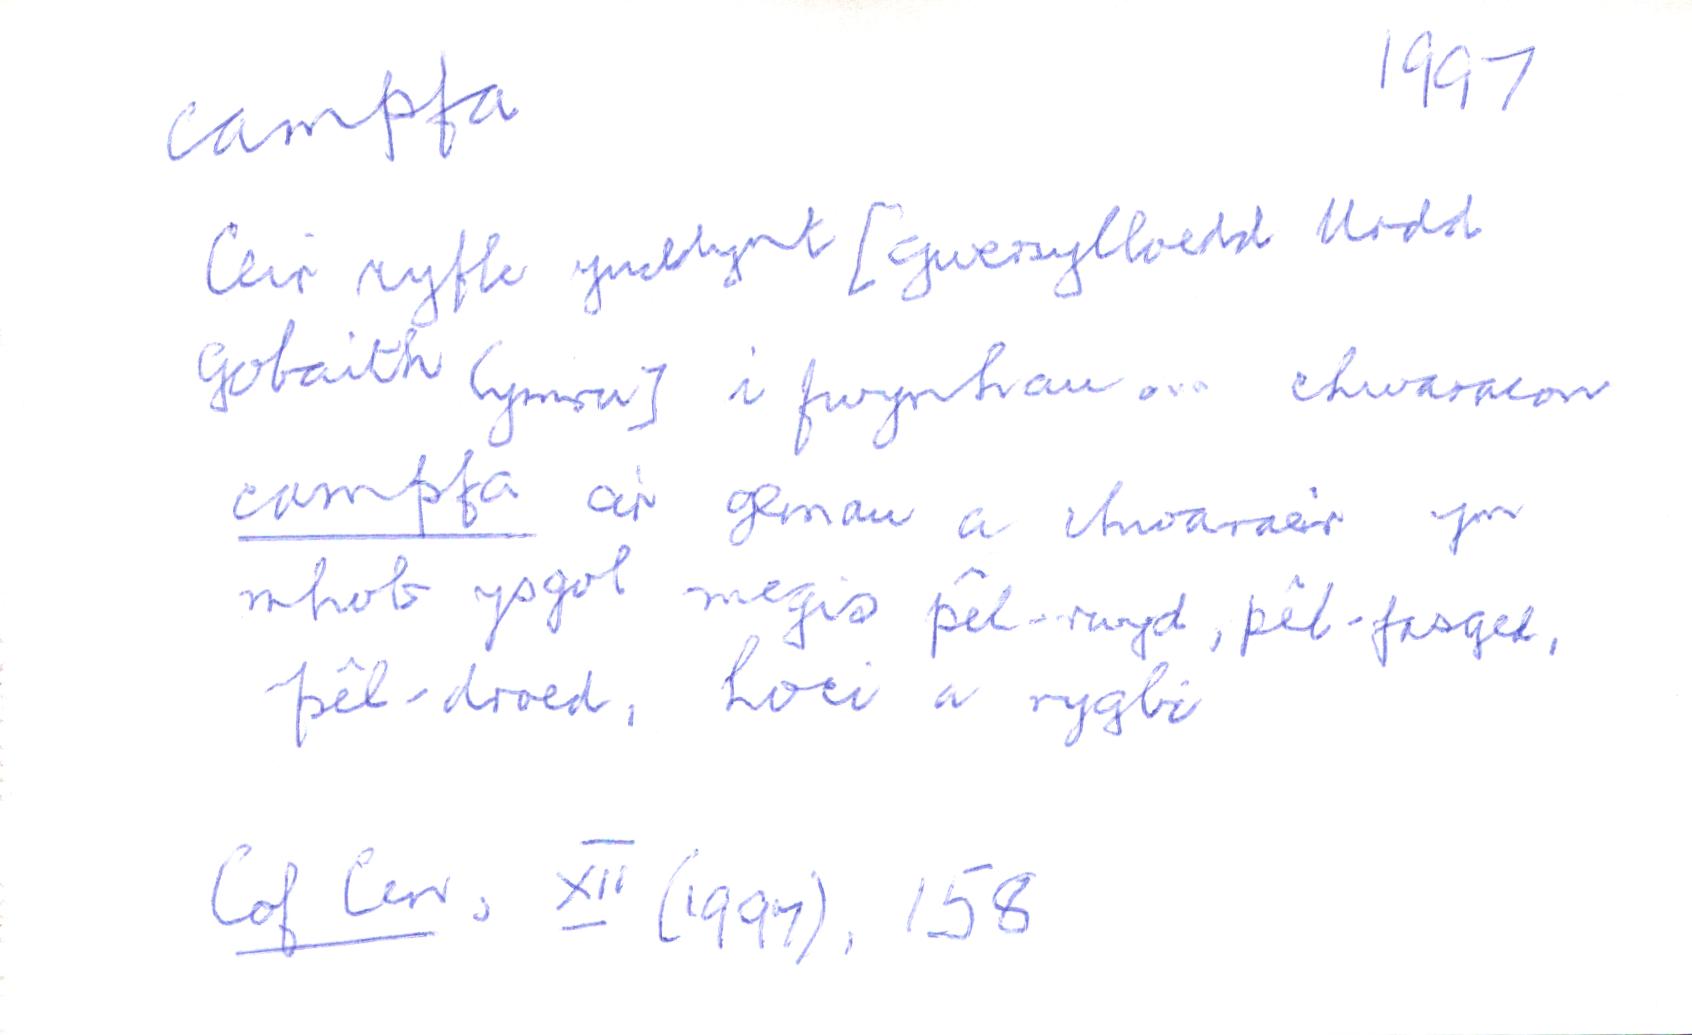 campfa 1997
Ceir cyfle ynddynt [Gwersylloedd Urdd
Gobaith Cymru] i fwynhau ... chwaraeon
campfa a'r gemau a chwaraeir ym
mhob ysgol megis pêl-rwyd, pêl-fasged,
pêl-droed, hoci a rygbi
Cof Cen, XII (1997), 158